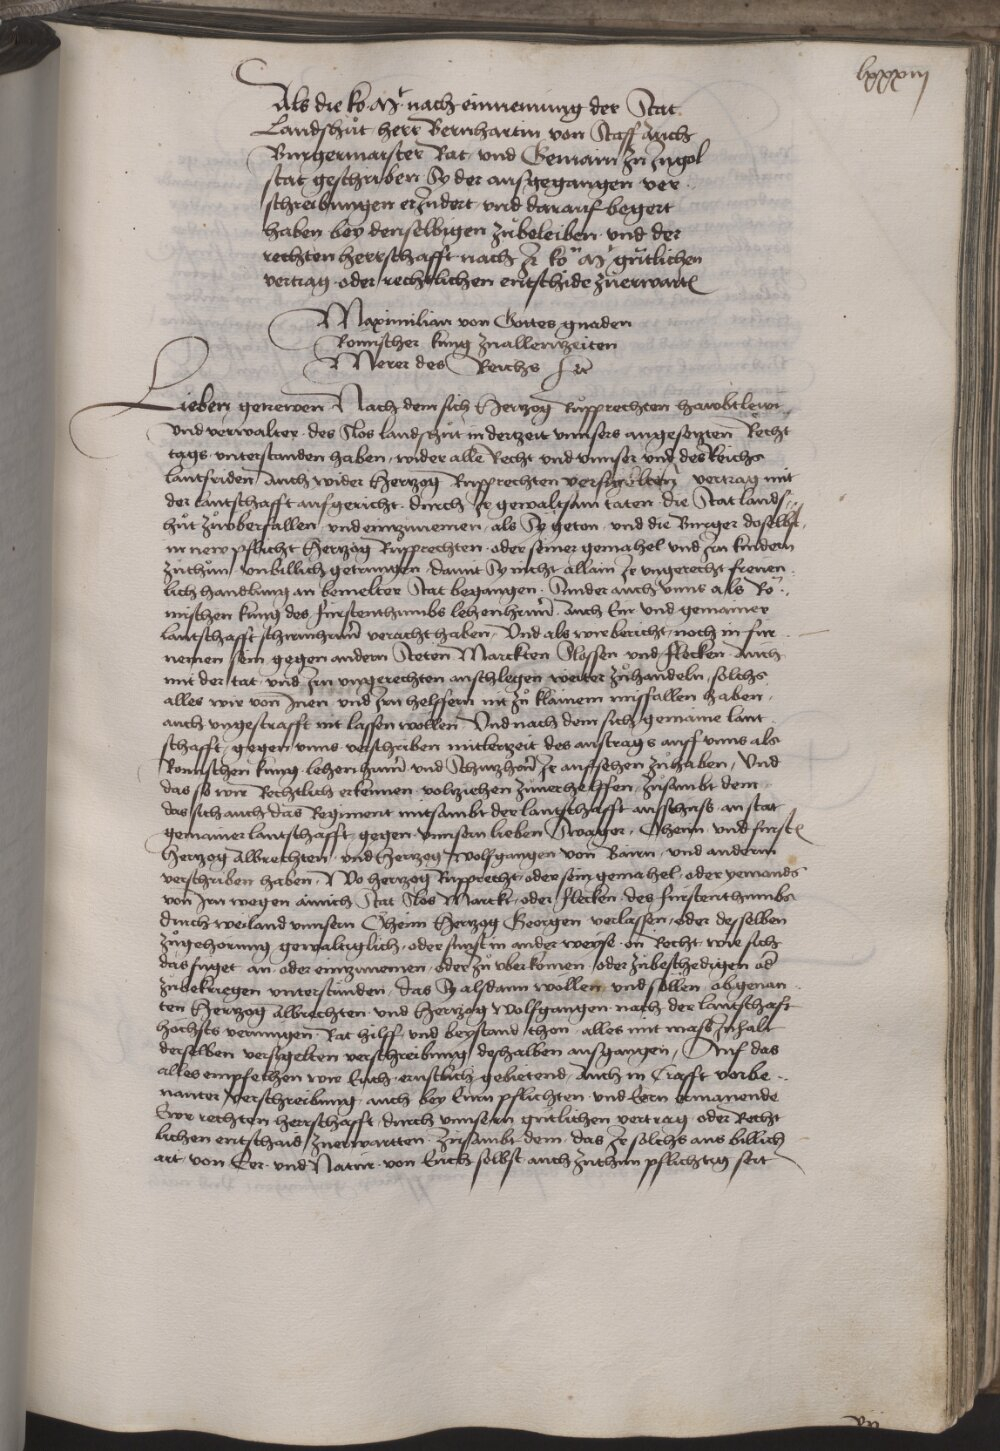 lxxxiij
Als die ko. Mt. nach einnemung der Stat
Landshůt herr Bernhartin von Stauff Auch
Burgermaister Rat und Gemain zu Ingol
stat geschriben Sy der ausgegangen ver
schreibungen erindert und darauf begert
haben bey denselbigen zubeleiben und der
rechten herrschafft nach Ir ko. Mt. gůtlichen
vertrag oder rechtlichen entschide zuerwarten
Maximilian von Gottes gnaden
Romischer kung zuallenntzeiten
Merer des Reichs etc
Lieben getrewen Nach dem sich Hertzog Rupprechten hawbtlewt
und verwalter des Slos landshůt in der zeit unnsers angesetzten Recht
tags understanden haben wider alle Recht und unnser und des Reichs
lantfriden Auch wider Hertzog Rupprechten versigelten vertrag mit
der lantschafft aufgericht durch Ir gewaltsam taten die Stat lands
hůt zuoberfallen und einzunemen als Sy geton und die Burger doselbst
in new pflicht Hertzog Růpprechten oder seiner gemahel und Irn kindern
zuthun unbillich getrungen damit Sy nicht allain Ir ungerecht freuen
lich handlung an bemelter Stat begangen Sunder auch unns als Ro
mischen kung des furstenthumbs lehenherrn Auch Eur und gemainer
lantschafft schirmherrn veracht haben Und als wir bericht noch in fur
nemen sein gegen andern Steten Marckten Slossen und flecken Auch
mit der tat und Irn ungerechten anschlegen weiter zuhandeln solchs
alles wir von Inen und Irn helffern nit zů klainem misfallen haben
auch ungestrafft nit lassen wollen Und nach dem sich gemaine lant
schafft gegen unns verschriben mitlerzeit des austrags auff unns als
Romischen kung lehenherrn und Schutzherrn Ir aufsehen zuhaben Und
das so wir Rechtlich erkennen volziehen zuverhelffen zusambt dem
das sich auch das Regiment mitsambt der lantschafft ausschuss an stat
gemainer lantschafft gegen unnsern lieben Swager Oheim und fursten
Hertzog Albrechten und Hertzog Wolfgangen von Bairn und anderm
verschriben haben Wo hertzog Rupprecht oder sein gemahel oder yemands
von Irn wegen ainich Stat Slos Marckt oder flecken des furstenthumbs
durch weiland unnsern Oheim Hertzog Georgen verlassen oder desselben
zugehorung gewaltiglich oder sunst in ander weyse on Recht wie sich
das fuget an oder einzunemen oder zu uberkomen oder zubeschedigen od
zubekriegen understunden das Sy alsdann wollen und sollen obgenan
ten Hertzog Albrechten und Hertzog Wolfgangen nach der lantschaft
hochsts vermugen Rat hilff und beystand thon alles mit mass Inhalt
derselben versigelten verschreibung deshalben ausgangen Auf das
alles empfelhen wir Euch ernstlich gebietend Auch in Crafft vorbe
nanter verschreibung auch bey Eurn pflichten und Eern ermanende
Ewr rechten herrschafft durch unnsern gutlichen vertrag oder Recht
lichen entschaid zuerwartten Zusambt dem das Ir solchs aus billich
art von Eer und Natur von Euch selbst auch zuthun pflichtig seit